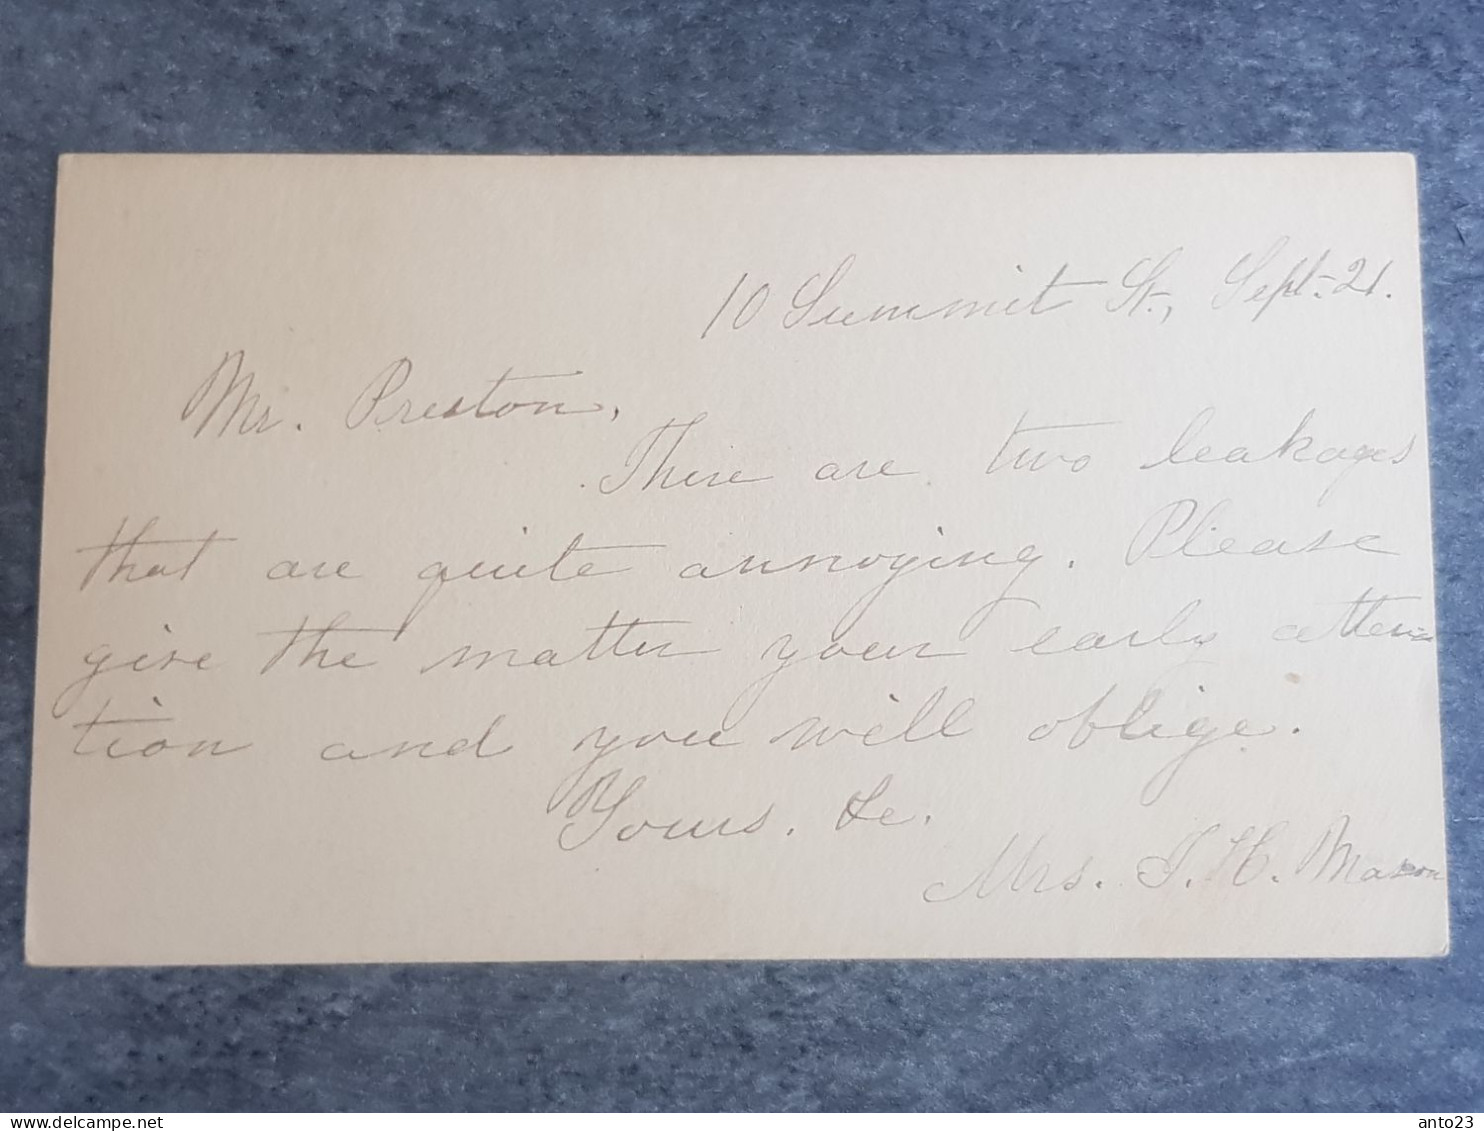 10 Summit St., Sept. 21.
Mr. Preston,
There are two leakages
that are quite annoying. Please
give the matter your early atten-
tion and you will oblige.
Yours. &c.
Mrs. T. H. Mason
delcampe.net
anto23